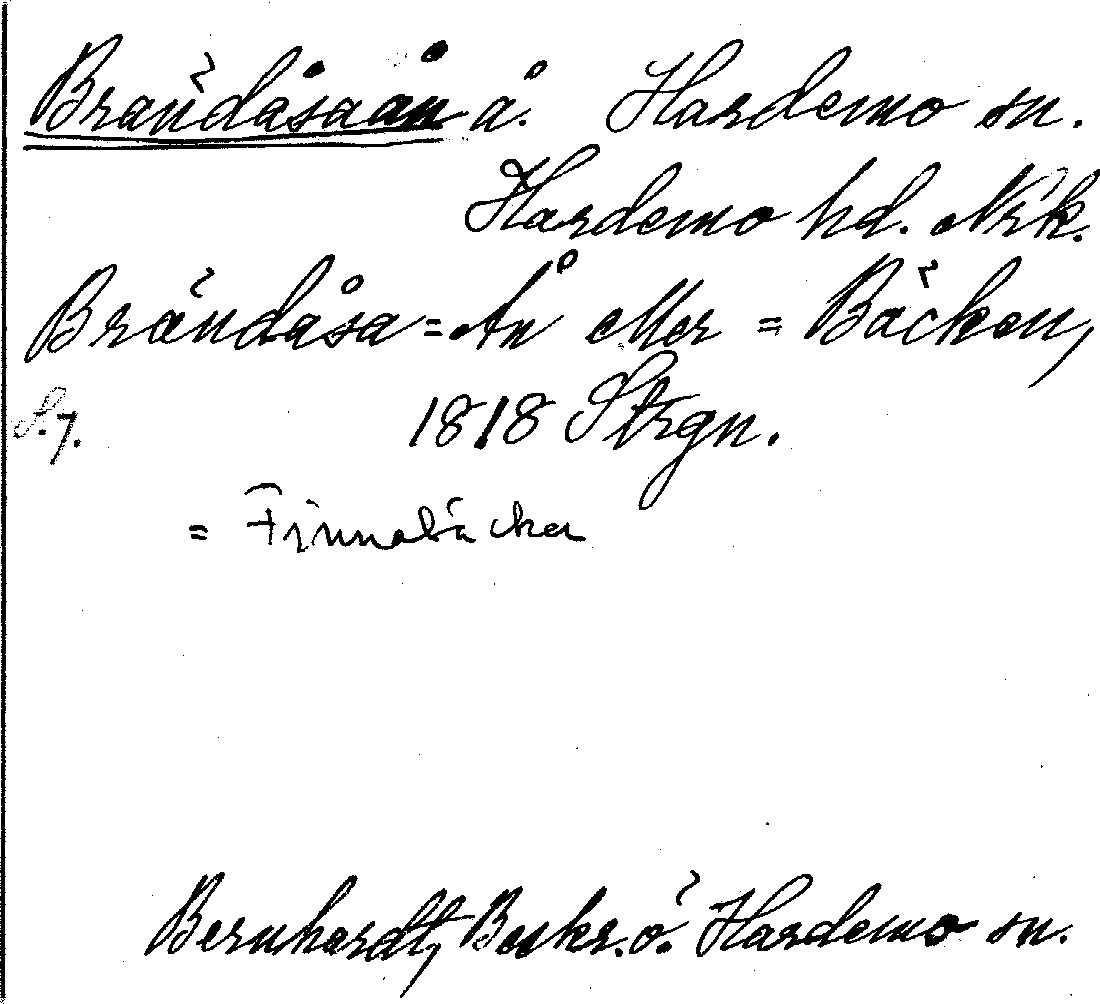 Brändåsaån å. Hardemo sn.
Hardemo hd. Nrk.
Brändåsa=Ån eller = Bäcken,
S.7. 1818 Strgn.
= Finnabäcken
Bernhardt, Beskr. ö. Hardemo sn.